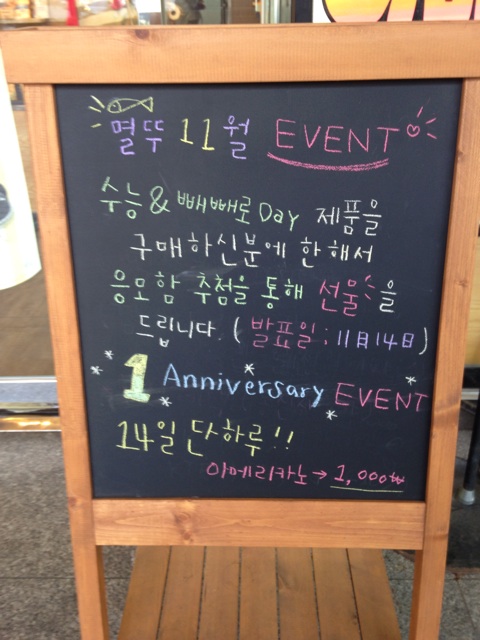 멸뚜 11월 EVENT
수능 & 빼빼로 Day 제품을
구매하신분에 한해서
응모함 추첨을 통해 선물을
드립니다. (발표일 : 11月14日)
1 Anniversary EVENT
14일 단하루!!
아메리카노 → 1,000₩